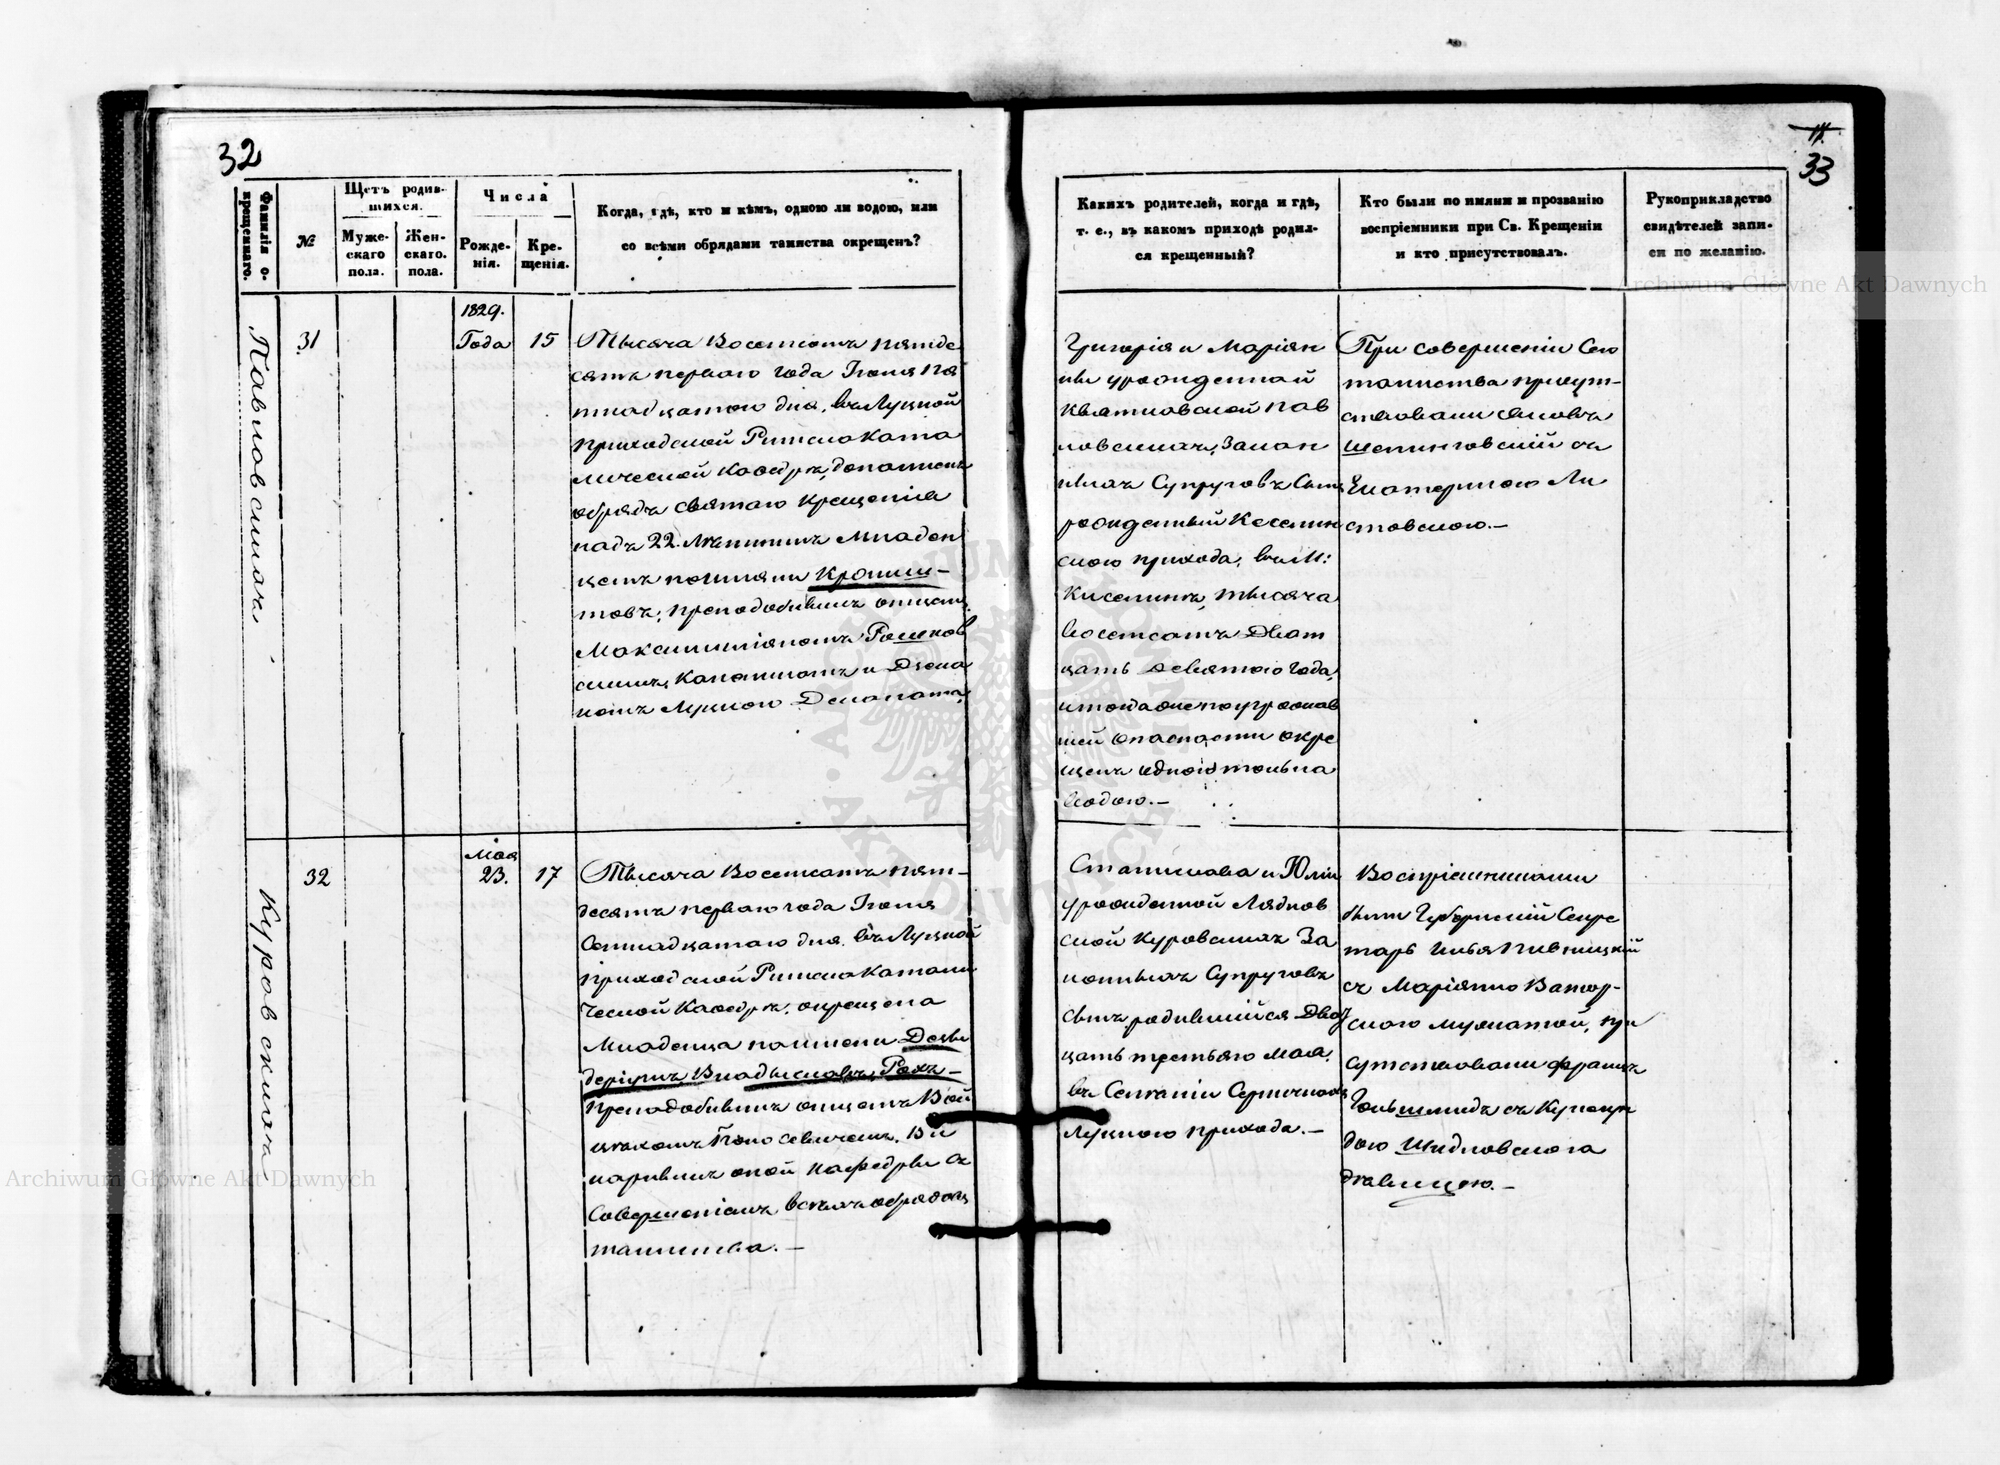 32
Фамилія о-
крещеннаго.
№
Щетъ родив-
шихся.
Муже-
скаго
пола.
Жен-
скаго.
пола.
Числа
Рожде-
нія.
Кре-
щенія.
Когда, гдѣ, кто и кѣмъ, одною ли водою, или
со всѣми обрядами таинства окрещенъ?
Павловскихъ
31
1829.
Года
15
Тысяча Восемсотъ пятьде
сятъ перваго года Іюня пя
тнадцатого дня, въ Луцкой
приходской Римскокато
лической Кафедрѣ, дополненъ
обрядъ святаго крещенія
надъ 22. лѣтнимъ младен
цемъ по имяни
преподобнымъ отцемъ
Максимиліяномъ
Капланомъ и
Луцкого Деканата,
Куровскихъ
32
Мая
23.
17
Тысяча Восемсотъ пять-
десятъ перваго года Іюня
Семнадцатаго дня. въ Луцкой
приходской Римскокатоли
ческой Кафедрѣ, окрещена
Младенца по имени Дези
деріумъ Владыславъ, Рохъ-
преподобнымъ отцемъ Вой
цѣхомъ Ви
каріемъ оной кафедры съ
Совершеніемъ всѣхъ обрядовъ
таинства. -
33
Какихъ родителей, когда и гдѣ,
т. е., въ какомъ приходѣ родил-
ся крещенный?
Кто были по имяни и прозванію
воспріемники при Св. Крещеніи
и кто присутствовалъ.
Рукоприкладство
свидѣтелей запи-
си по желанію.
Григорія и Маріян
ны урожденной
Квятковской Пав
ловскихъ, Закон
ныхъ Супруговъ Сынъ
рожденный Киселин
ского прихода, въ М:
Киселинѣ, тысяча
восемсотъ Двад
цать девятого года,
и тогда же по угрожав
шей опасности окре
щенъ одной только
водою. -
При совершеніи Сего
таинства присут-
ствовали Яковъ
съ
Екатериною Ли
совскою. -
Станислава и Юліи
урожденной
ской Куровскихъ За
конныхъ Супруговъ
сынъ родившійся Двад
цать третьяго мая,
въ Селѣніи
Луцкого прихода. -
Воспріемниками
были Губернскій Секре
тарь Илья Пивницкій
съ Маріянно
при
сутствовали Францъ
съ
дѣвицею. -
Archiwum Główne Akt Dawnych
Archiwum Główne Akt Dawnych